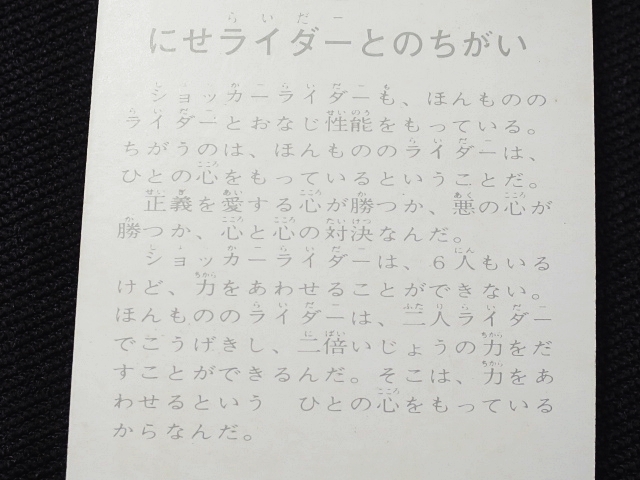 にせライダーとのちがい
ショッカーライダーも、ほんものの
ライダーとおなじ性能をもっている。
ちがうのは、ほんもののライダーは、
ひとの心をもっているということだ。
正義を愛する心が勝つか、悪の心が
勝つか、心と心の対決なんだ。
ショッカーライダーは、6人もいる
けど、力をあわせることができない。
ほんもののライダーは、二人ライダー
でこうげきし、二倍いじょうの力をだ
すことができるんだ。そこは、力をあ
わせるという　ひとの心をもっている
からなんだ。